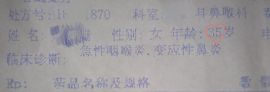 处方号: 870 科室: 耳鼻喉科
姓名: 性别: 女 年龄: 35岁
临床诊断: 急性咽喉炎.变应性鼻炎
Rp: 药品名称及规格